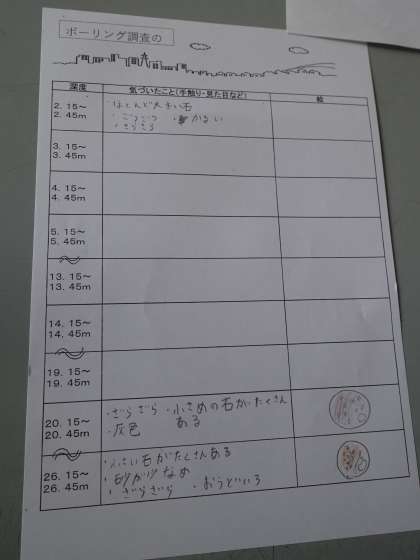 ボーリング調査の
深度 気づいたこと(手触り・見た目など) 絵
2.15～
2.45m
・ほとんど大きい石
・ごつごつ ・かるい
・さらさら
3.15～
3.45m
4.15～
4.45m
5.15～
5.45m
13.15～
13.45m
14.15～
14.45m
19.15～
19.45m
20.15～
20.45m
・ざらざら ・小さめの石がたくさん
ある
・灰色
26.15～
26.45m
・小さい石がたくさんある
・砂が少なめ
・ざらざら ・おうどいろ